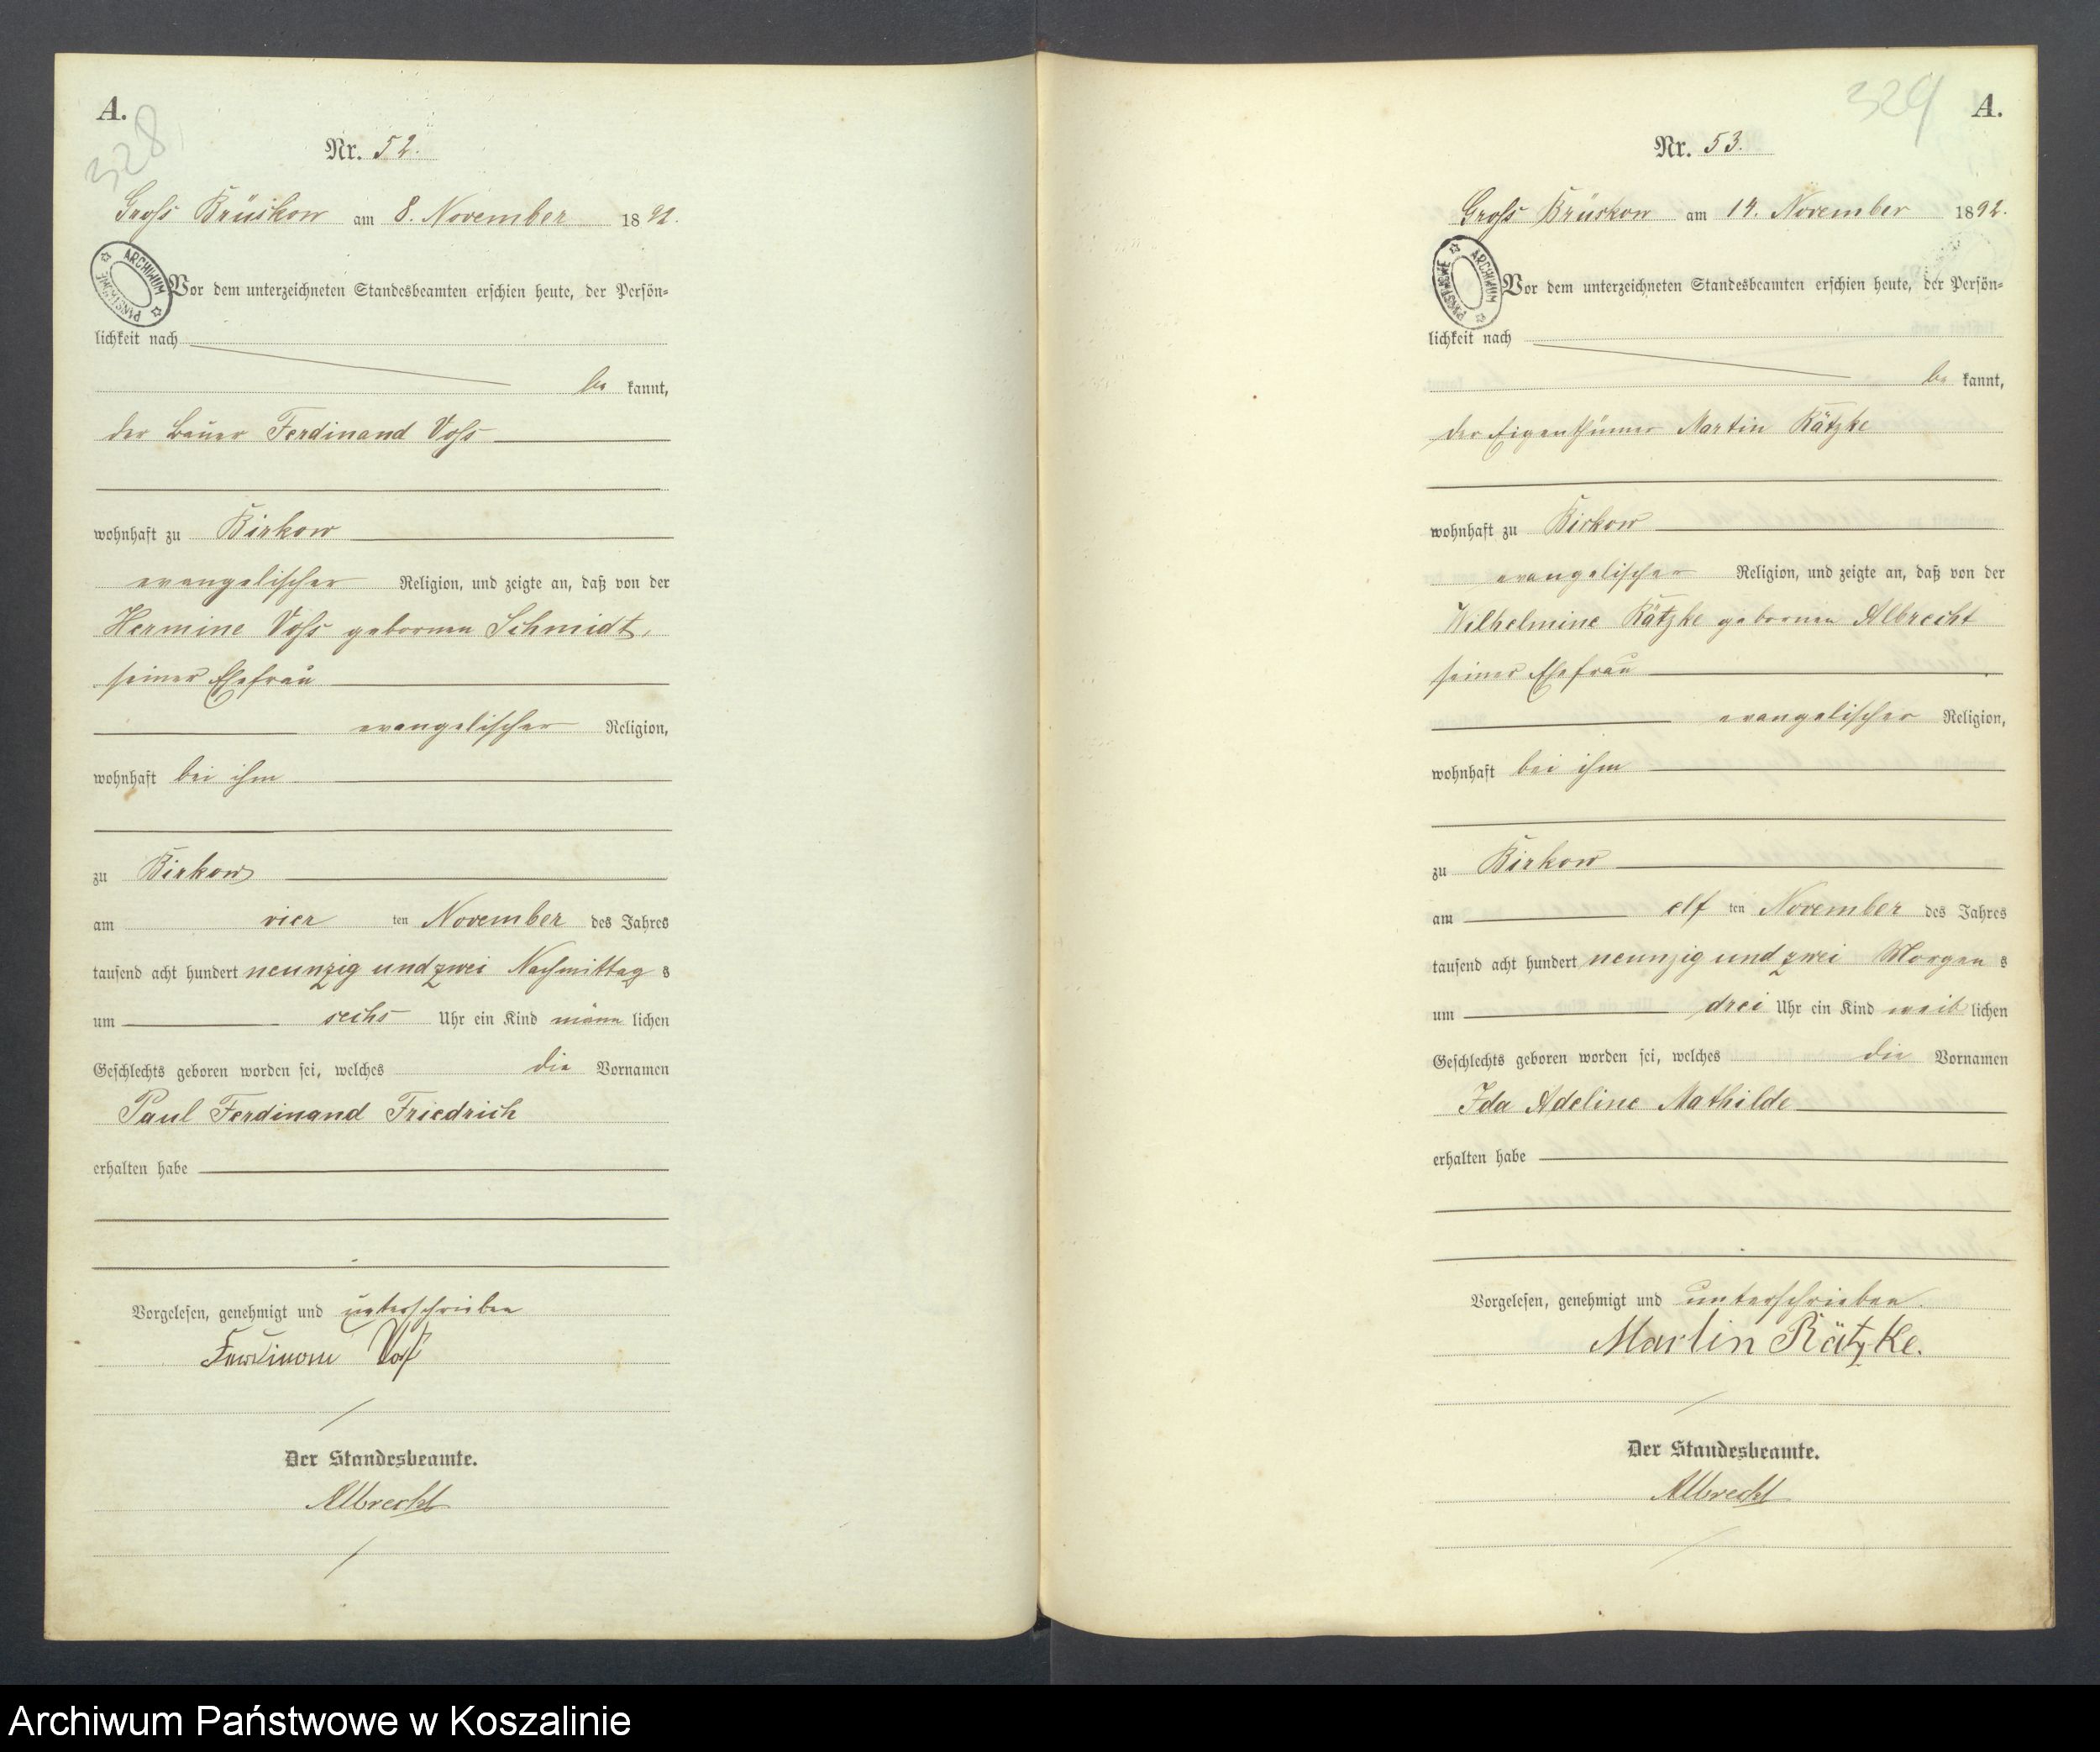 A.
328
Nr. 52.
Gross Brüskow am 8. November 1892.
ARCHIWUM PAŃSTWOWE
Vor dem unterzeichneten Standesbeamten erschien heute, der Persön-
lichkeit nach
be kannt,
der Bauer Ferdinand Voss
wohnhaft zu Birkow
evangelischer Religion, und zeigte an, daß von der
Hermine Voss gebornen Schmidt,
seiner Ehefrau
evangelischer Religion,
wohnhaft bei ihm
zu Birkow
am vier ten November des Jahres
tausend acht hundert neunzig und zwei Nachmittag s
um sechs Uhr ein Kind männ lichen
Geschlechts geboren worden sei, welches die Vornamen
Paul Ferdinand Friedrich
erhalten habe
Vorgelesen, genehmigt und unterschrieben
Ferdinand Voß
Der Standesbeamte.
Albrecht
329
A.
Nr. 53.
Gross Brüskow am 14. November 1892.
ARCHIWUM PAŃSTWOWE
Vor dem unterzeichneten Standesbeamten erschien heute, der Persön-
lichkeit nach
be kannt,
der Eigenthümer Martin Rätzke
wohnhaft zu Birkow
evangelischer Religion, und zeigte an, daß von der
Wilhelmine Rätzke gebornen Albrecht
seiner Ehefrau
evangelischer Religion,
wohnhaft bei ihm
zu Birkow
am elf ten November des Jahres
tausend acht hundert neunzig und zwei Morgen s
um drei Uhr ein Kind weib lichen
Geschlechts geboren worden sei, welches die Vornamen
Ida Adeline Mathilde
erhalten habe
Vorgelesen, genehmigt und unterschrieben.
Martin Rätzke.
Der Standesbeamte.
Albrecht
Archiwum Państwowe w Koszalinie